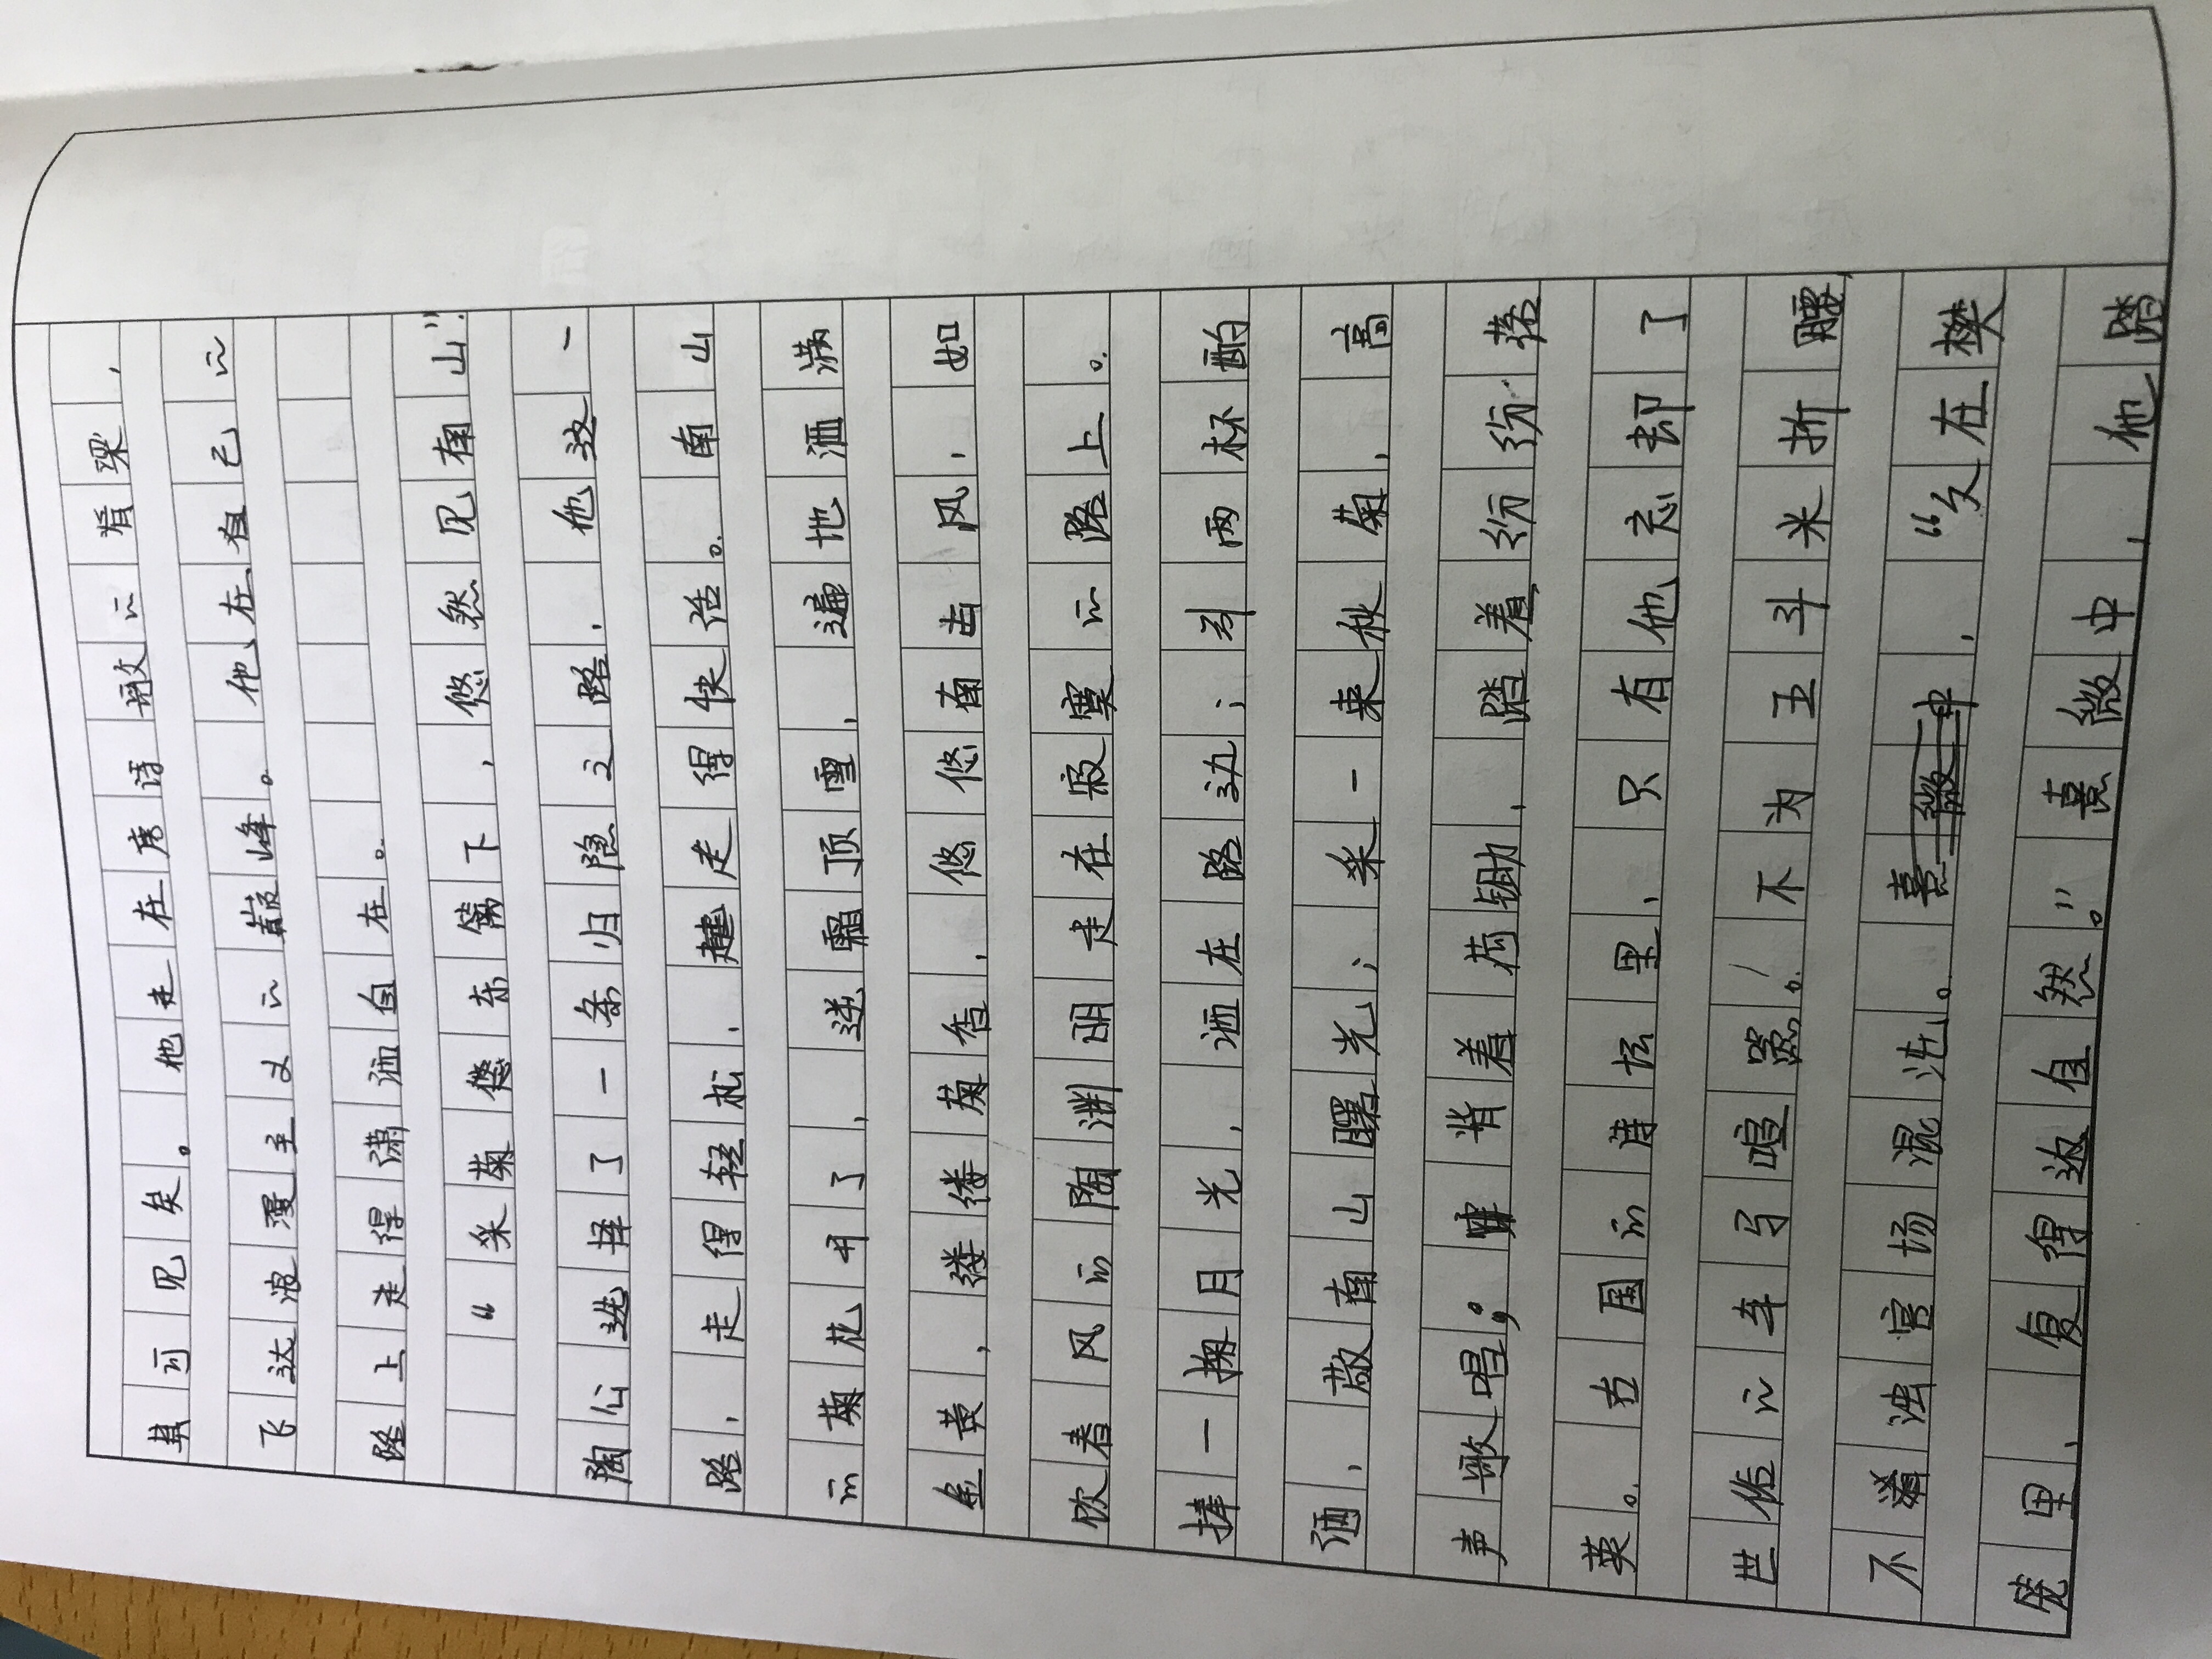 可见矣。他走在唐诗的脊梁,
飞达浪漫主义的巅峰。他在自己的
路上走得潇洒自在。
“采菊东篱下,悠然见南山”.
陶公选择了一条归隐之路,他这一
路,走得轻松,走得快活。南山
的菊花开了,迎霜顶雪,遍地洒满
金黄,缕缕菊香,悠悠南风,如
饮着风的陶渊明走在寂寞的路上。
捧一掬月光,洒在路边;引两杯酌
酒,敬南山曙光;采一束秋菊,高
声歌唱;背着荷锄,踏着纷纷落
英。古国的诗坛里,只有他忘却了
世俗的车马喧嚣。不为五斗米折腰,
不浊官场混沌。,“久在樊
笼里,复得返自然。”熹微中,他踏